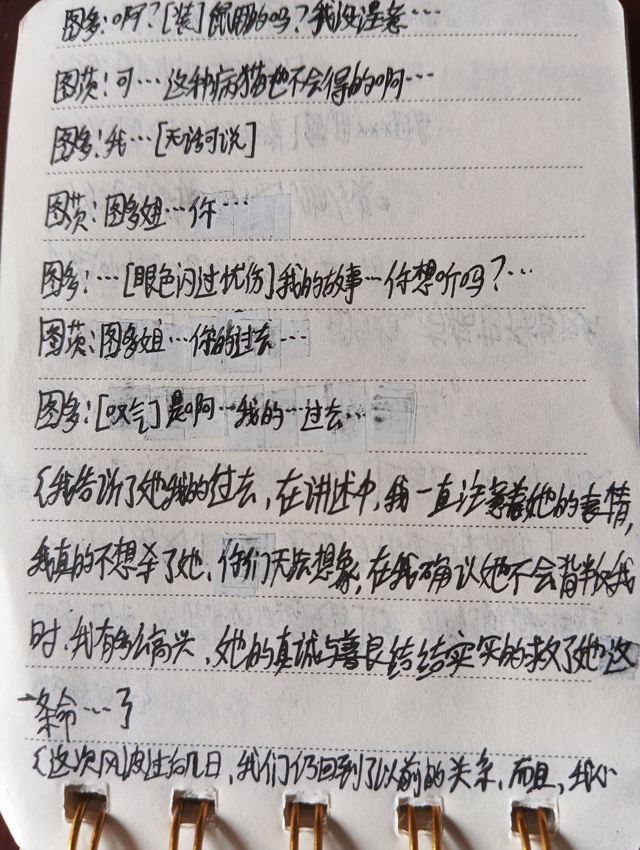 图多:啊?[装]能朋的吗?我没注意…
图茨:可…这种病猫也不会得的啊…
图多:我…[无话可说]
图茨:图多姐…你…
图多:…[眼色闪过忧伤]我的故事…你想听吗?…
图茨:图多姐…你的过去…
图多:[叹气]是啊…我的…过去…
(我告诉了她我的过去,在讲述中,我一直注意着她的表情,
我真的不想杀了她,你们无法想象,在我确认她不会背叛我
时,我有多么高兴,她的真诚与善良结结实实的救了她这
条命…了
(这次风波过后几日,我们仍回到了以前的关系,而且,我从